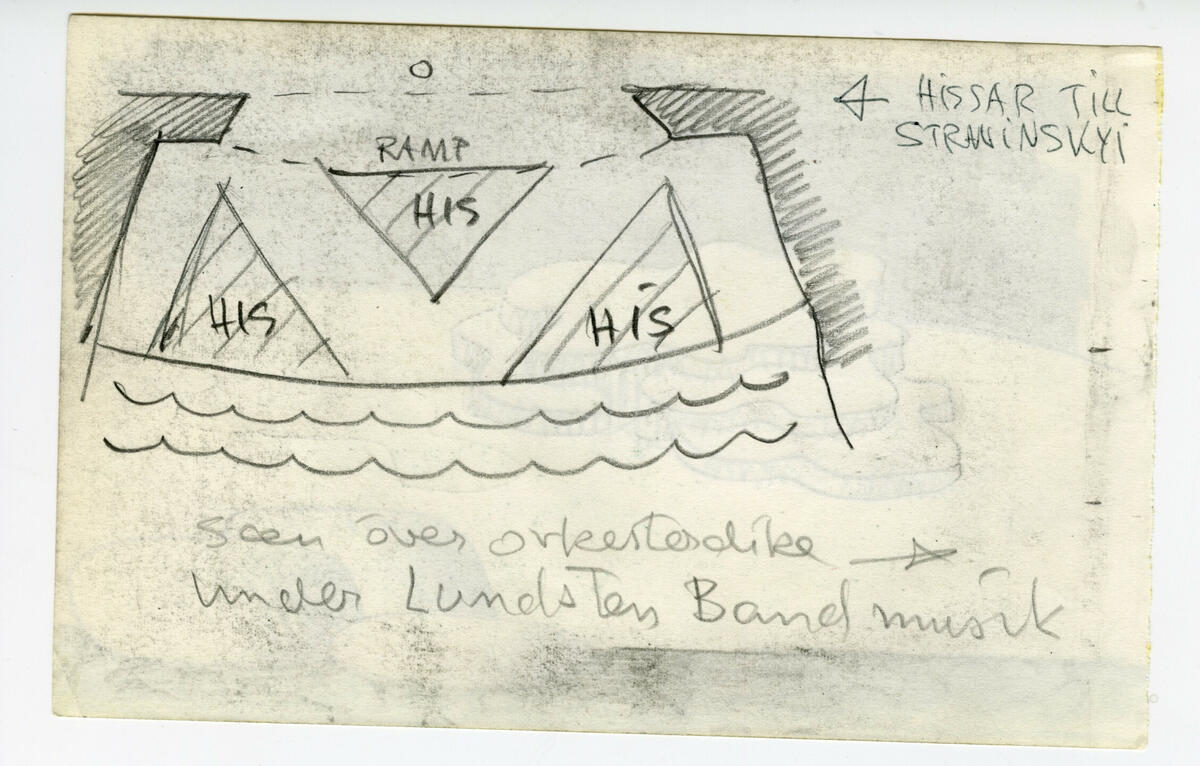 HISSAR TILL
STRAVINSKYI
RAMP
HIS
HIS
HIS
scen över orkesterdike
under Lundsten Bandmusik